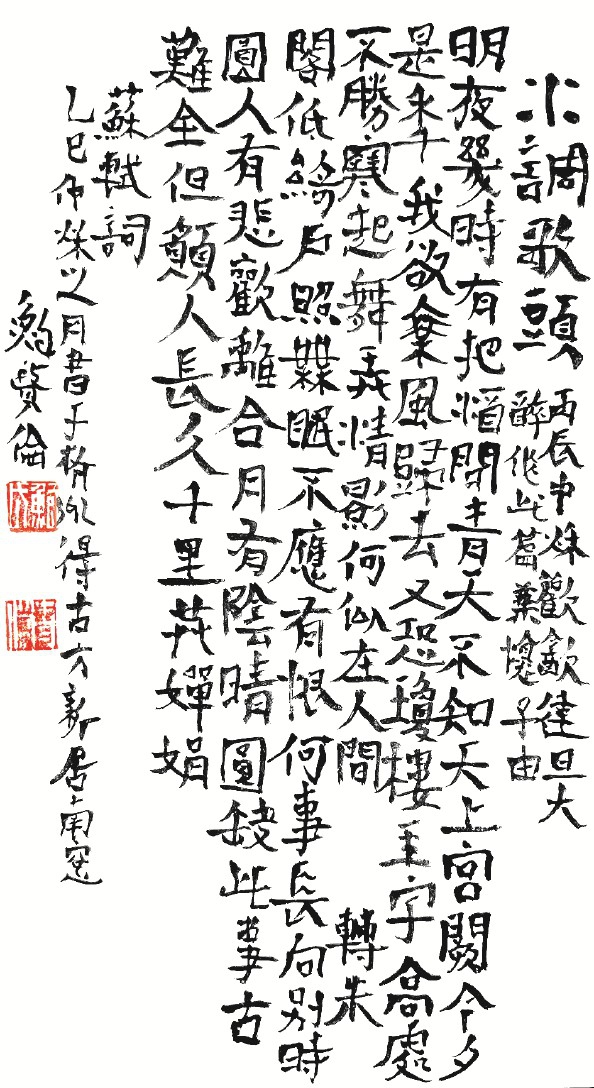 水調歌頭
丙辰中秋歡飲達旦大
醉作此篇兼懷子由
明夜幾時有把酒問青天不知天上宮闕今夕
是秊我欲乘風歸去又恐瓊樓玉宇高處
不勝寒起舞弄清影何似在人間 轉朱
閣低綺戶照無眠不應有恨何事長向別時
圓人有悲歡離合月有陰晴圓缺此事古
難全但願人長久千里共嬋娟
蘇軾詞
乙巳仲秋之月書于得古方新居南窗